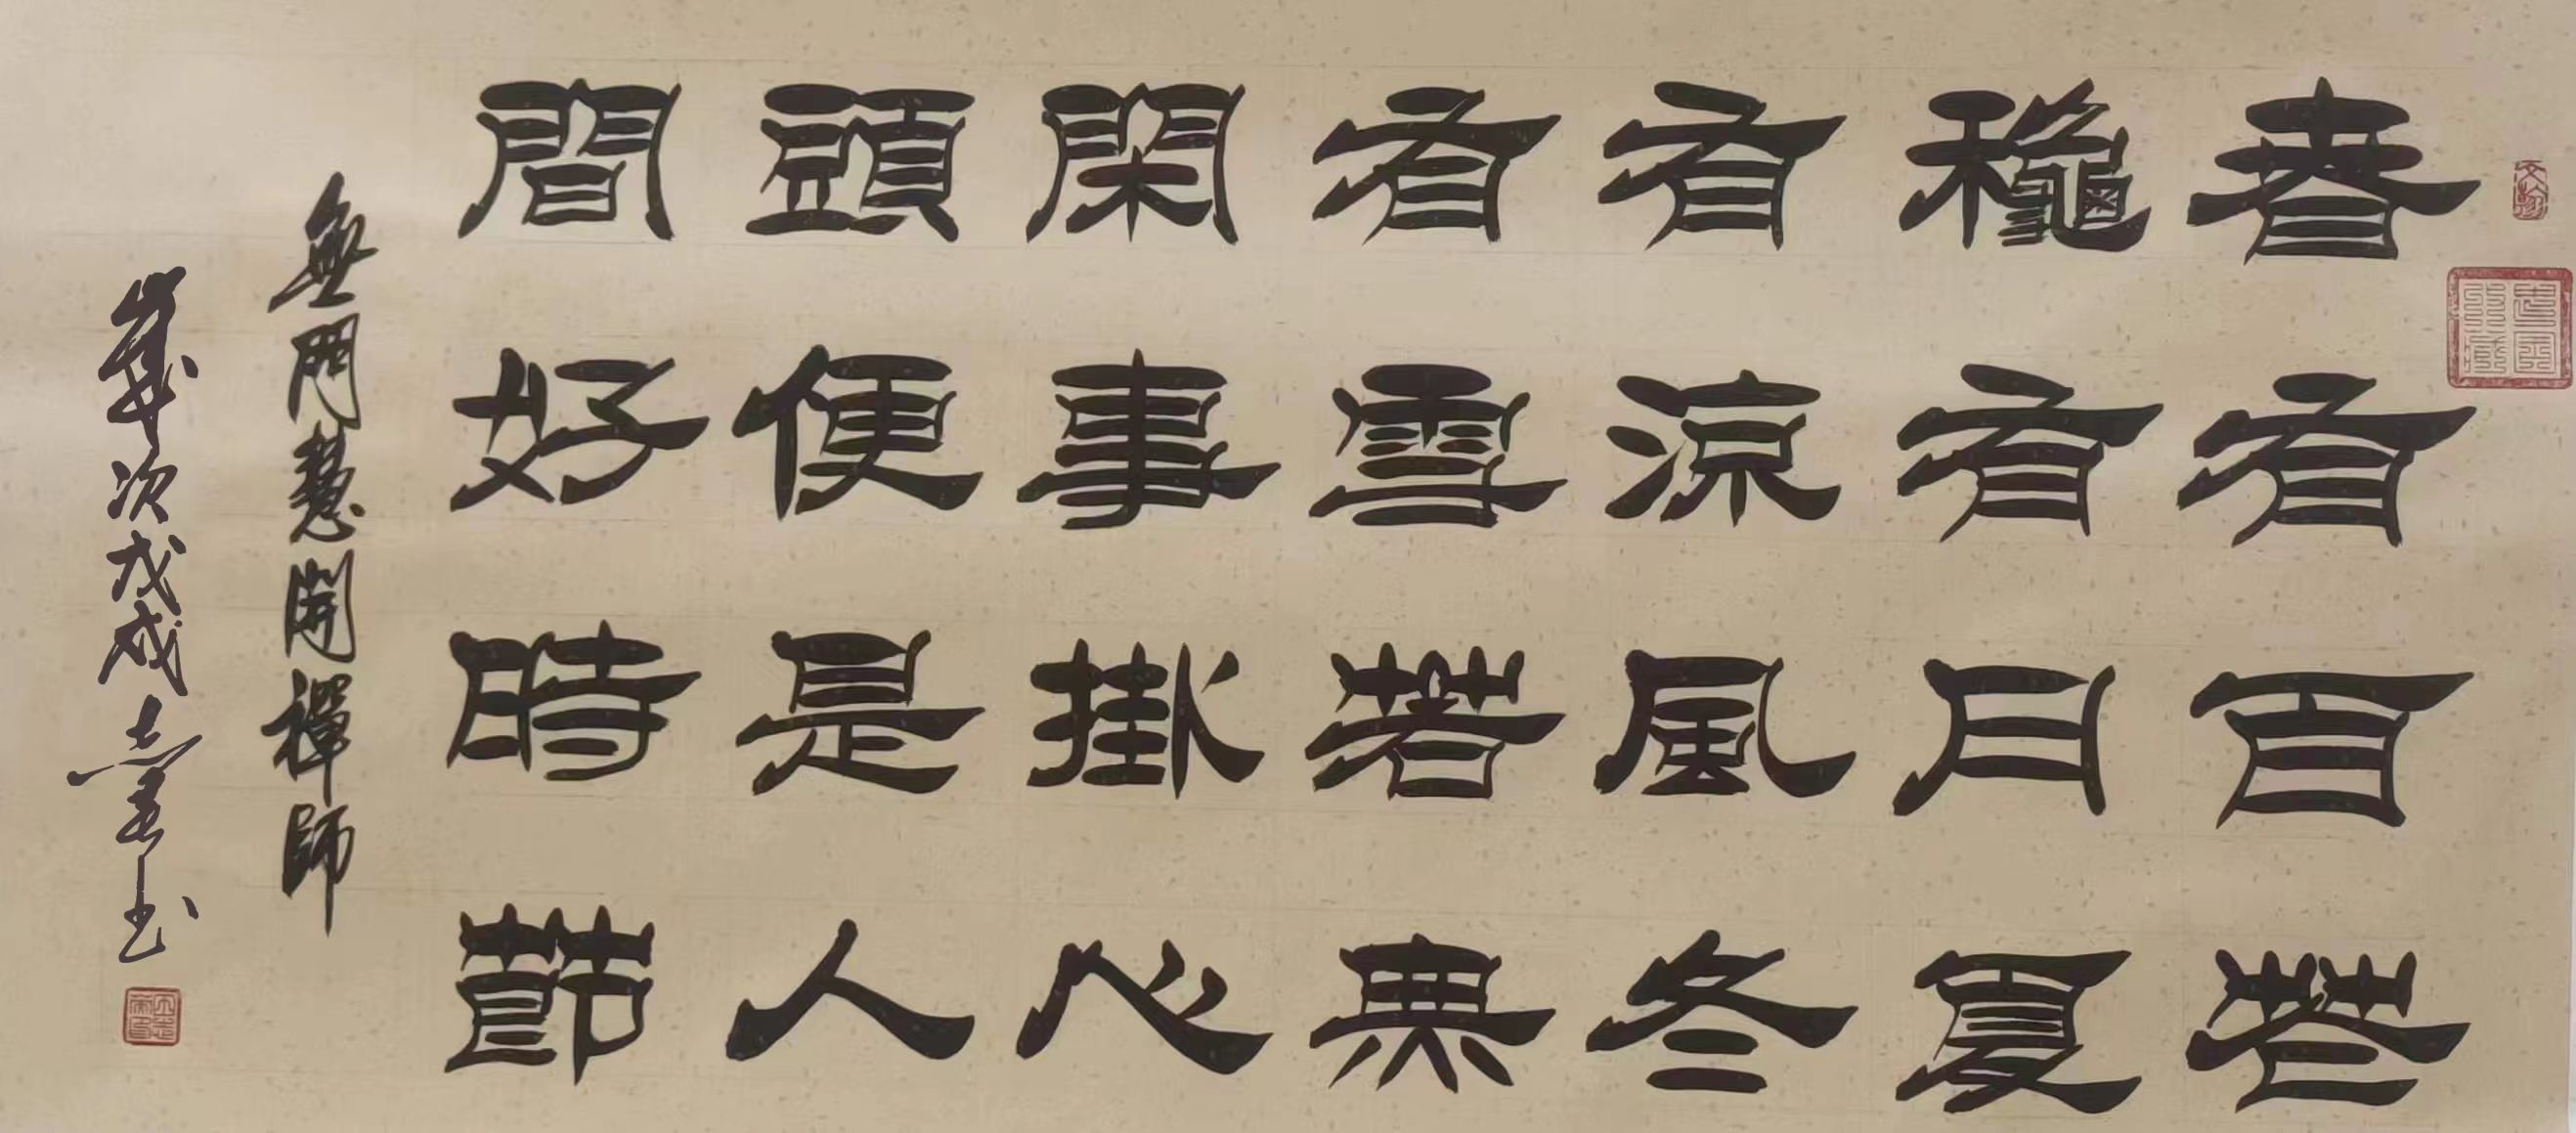 春有百花
龝有月夏
有涼風冬
有雪若無
閑事掛心
頭便是人
間好時節
無門慧開禪師
歲次戊戌